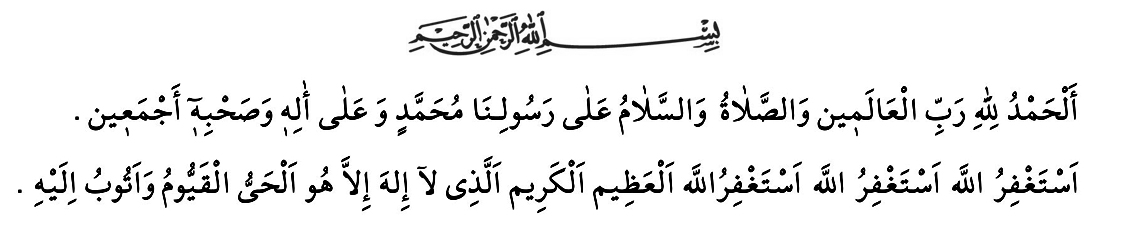 بِسْمِ اللهِ الرَّحْمٰنِ الرَّحِيمِ
أَلْحَمْدُ لِلّٰهِ رَبِّ الْعَالَمٖين وَالصَّلٰاةُ وَالسَّلٰامُ عَلٰى رَسُولِنَا مُحَمَّدٍ وَ عَلٰى أٰلِهٖ وَصَحْبِهٖٓ أَجْمَعٖين .
اَسْتَغْفِرُ اللَّه اَسْتَغْفِرُ اللَّه اَسْتَغْفِرُاللَّه اَلْعَظِيم اَلْكَرِيم اَلَّذِى لآ إِلهَ إِلاَّ هُو اَلْحَىُّ الْقَيُّومُ وَاَتُوبُ اِلَيْهِ .